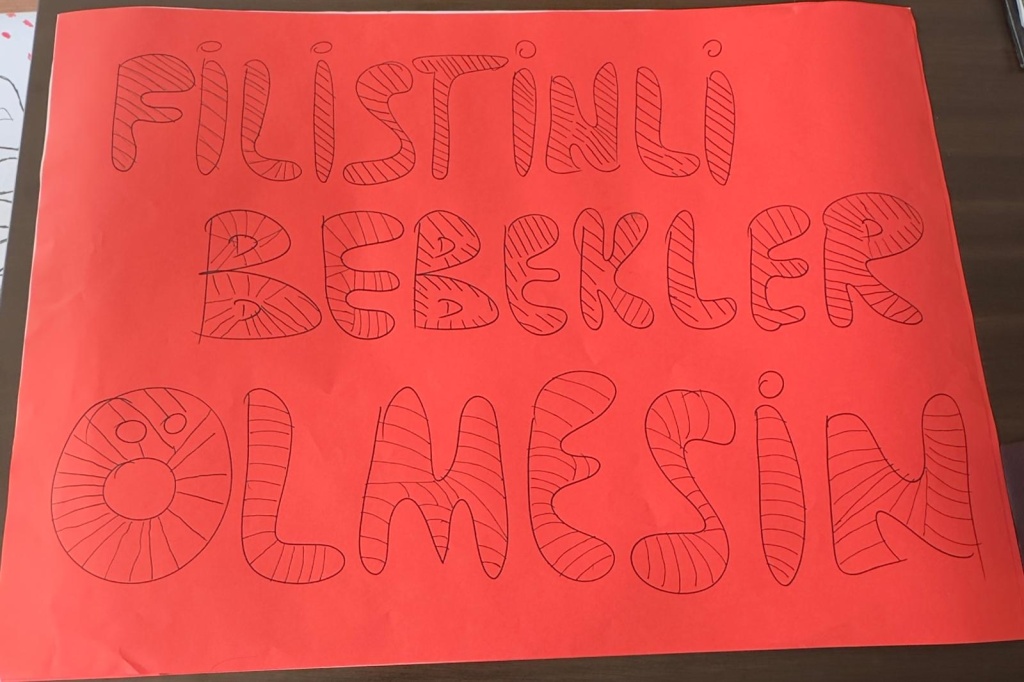 FİLİSTİNLİ
BEBEKLER
ÖLMESİN